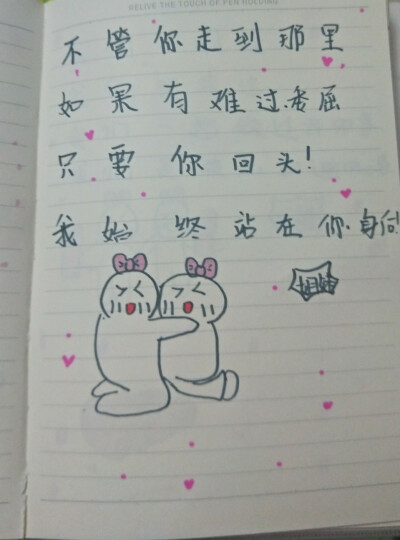 RELIVE THE TOUCH OF PEN HOLDING
不管你走到那里
如果有难过委屈
只要你回头!
我始终站在你身